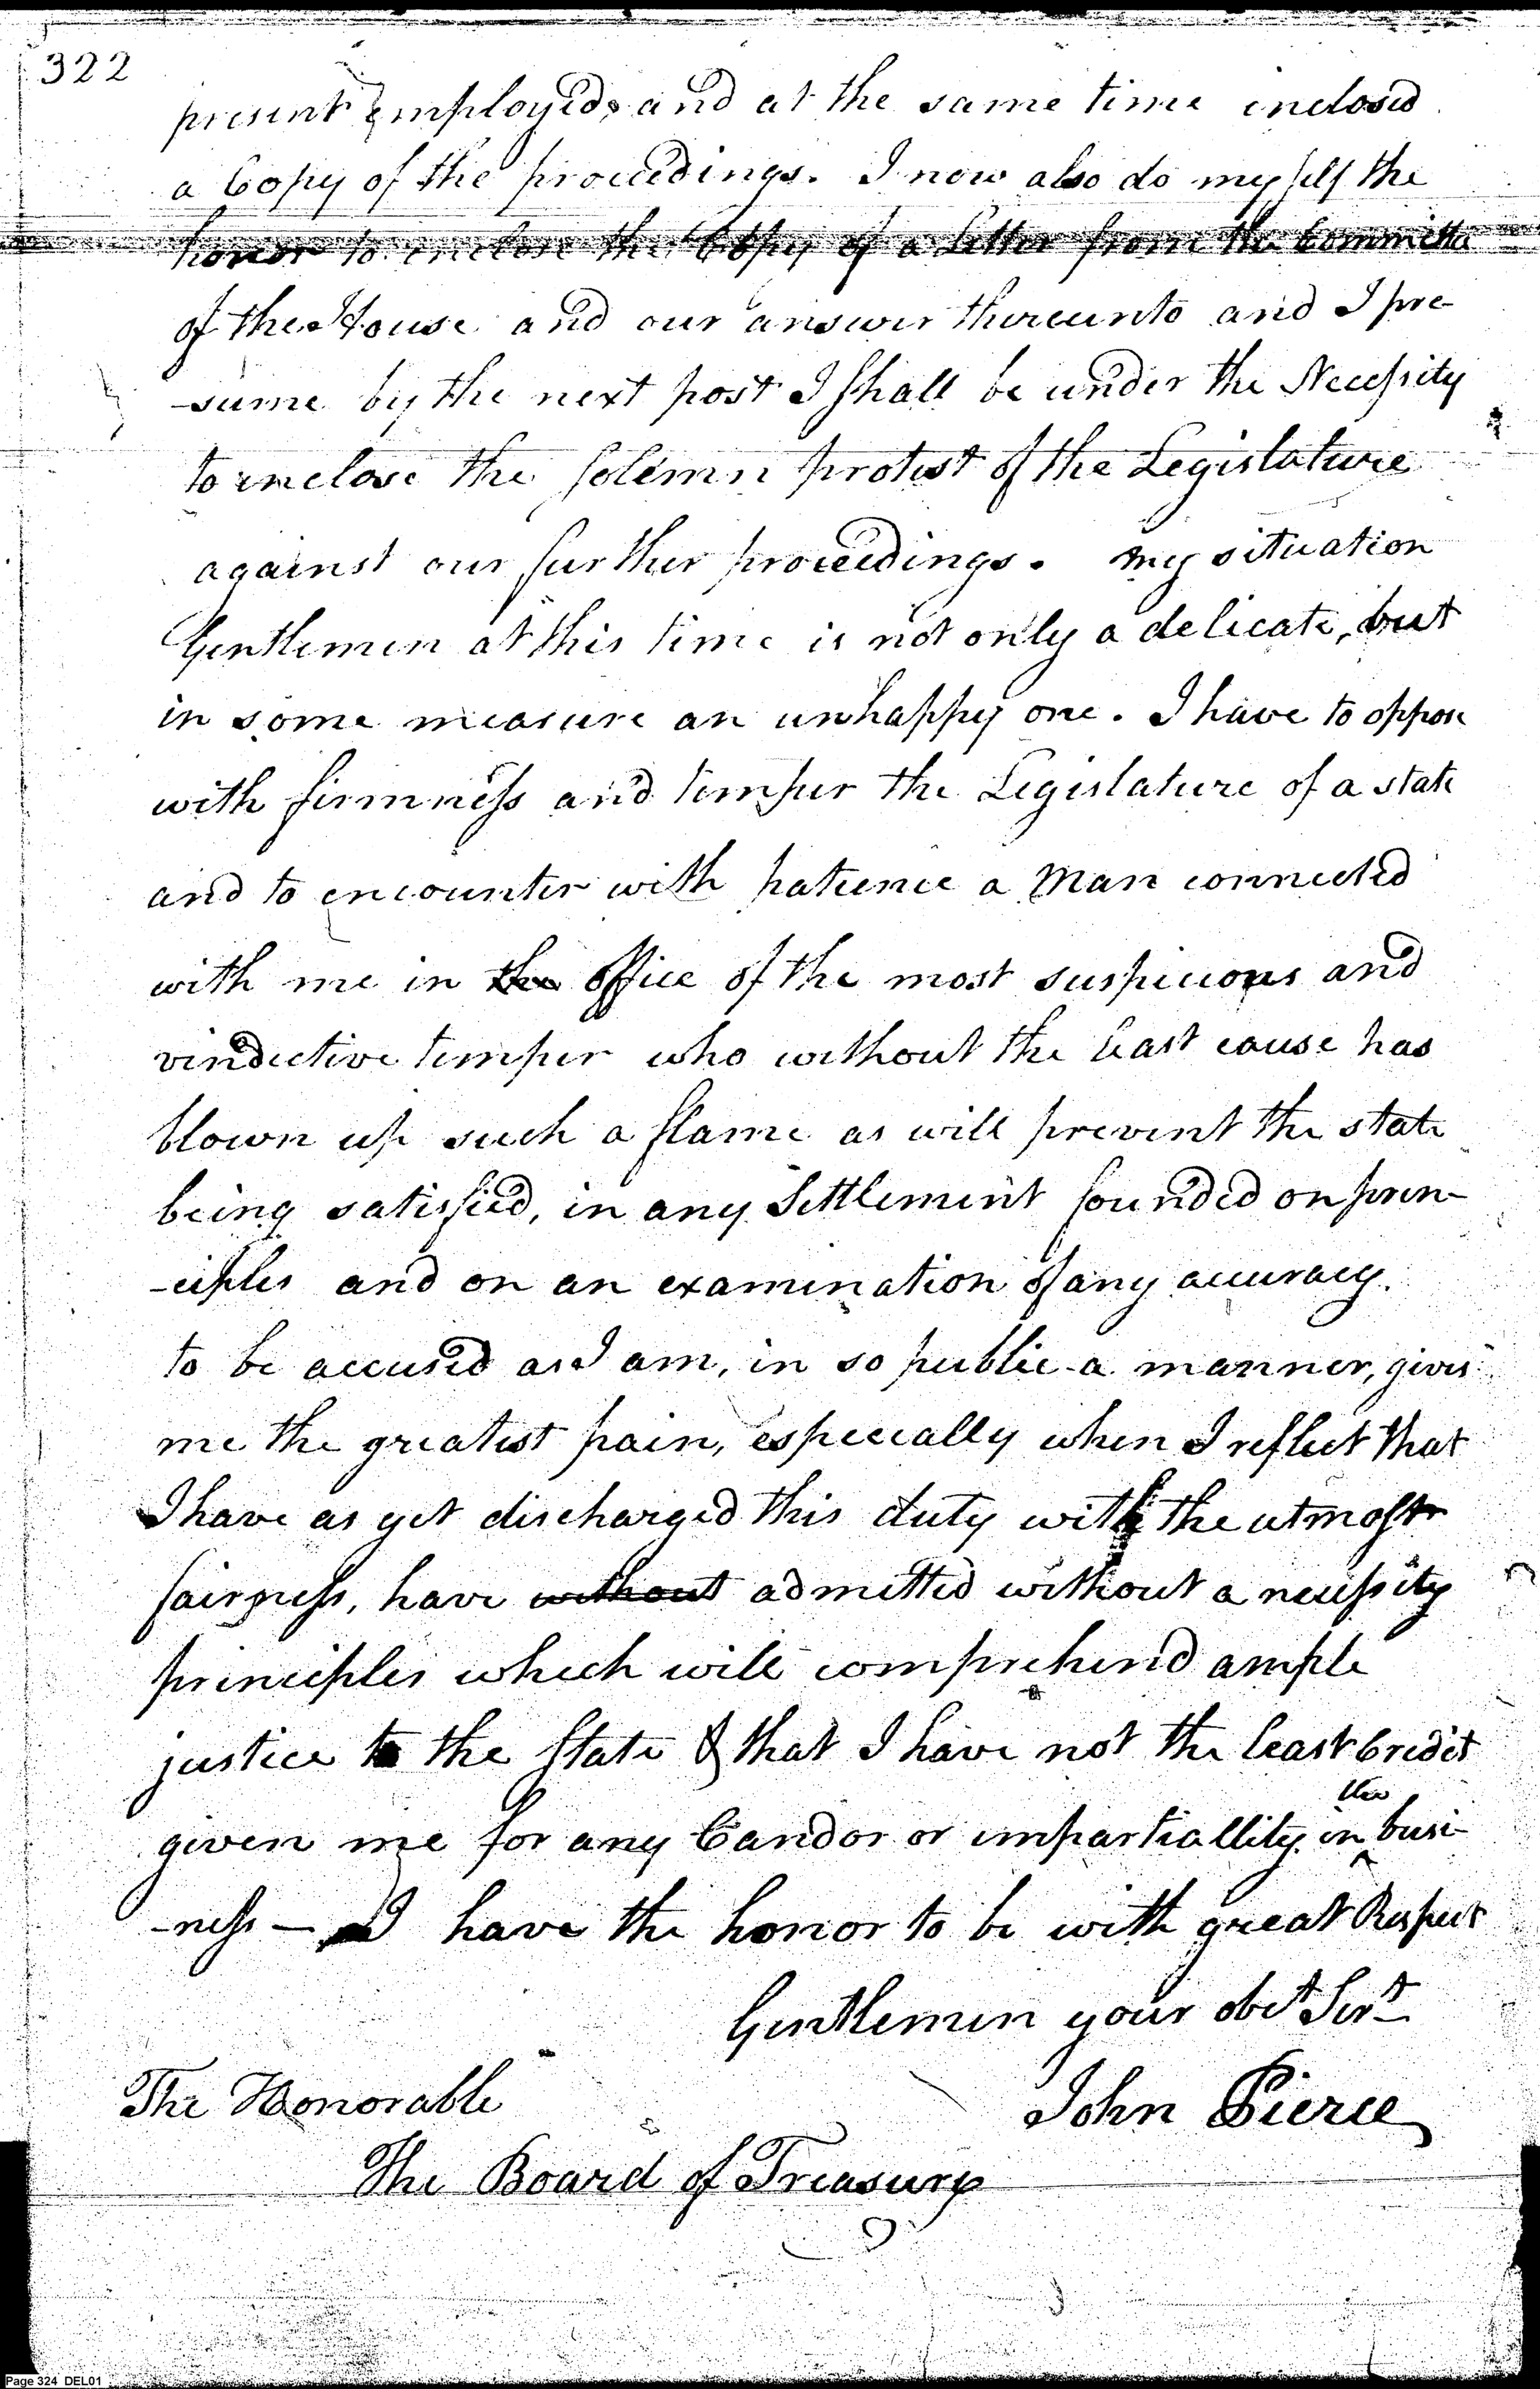 322
present employed, and at the same time inclosed
a Copy of the proceedings. I now also do my self the
honor to enclose the Copy of a Letter from the Committee
of the House and our answer thereunto and I pre-
-sume by the next post I shall be under the Necessity
to inclose the solemn protest of the Legislature
against our further proceedings. My situation
Gentlemen at this time is not only a delicate, but
in some measure an unhappy one. I have to oppose
with firmness and temper the Legislature of a state
and to encounter with patience a Man connected
with me in the office of the most suspicious and
vindictive temper who without the least cause has
blown up such a flame as will prevent the state
being satisfied, in any Settlement founded on prin-
-ciples and on an examination of any accuracy.
to be accused as I am, in so public a manner, gives
me the greatest pain, especially when I reflect that
I have as yet discharged this duty with the utmost
fairness, have without admitted without a necessity
principles which will comprehend ample
justice to the State & that I have not the least Credit
given me for any Candor or impartiallity in the busi-
-ness — I have the honor to be with great Respect
Gentlemen your obt Sert
The Honorable
John Pierce
The Board of Treasury
Page 324 DEL01